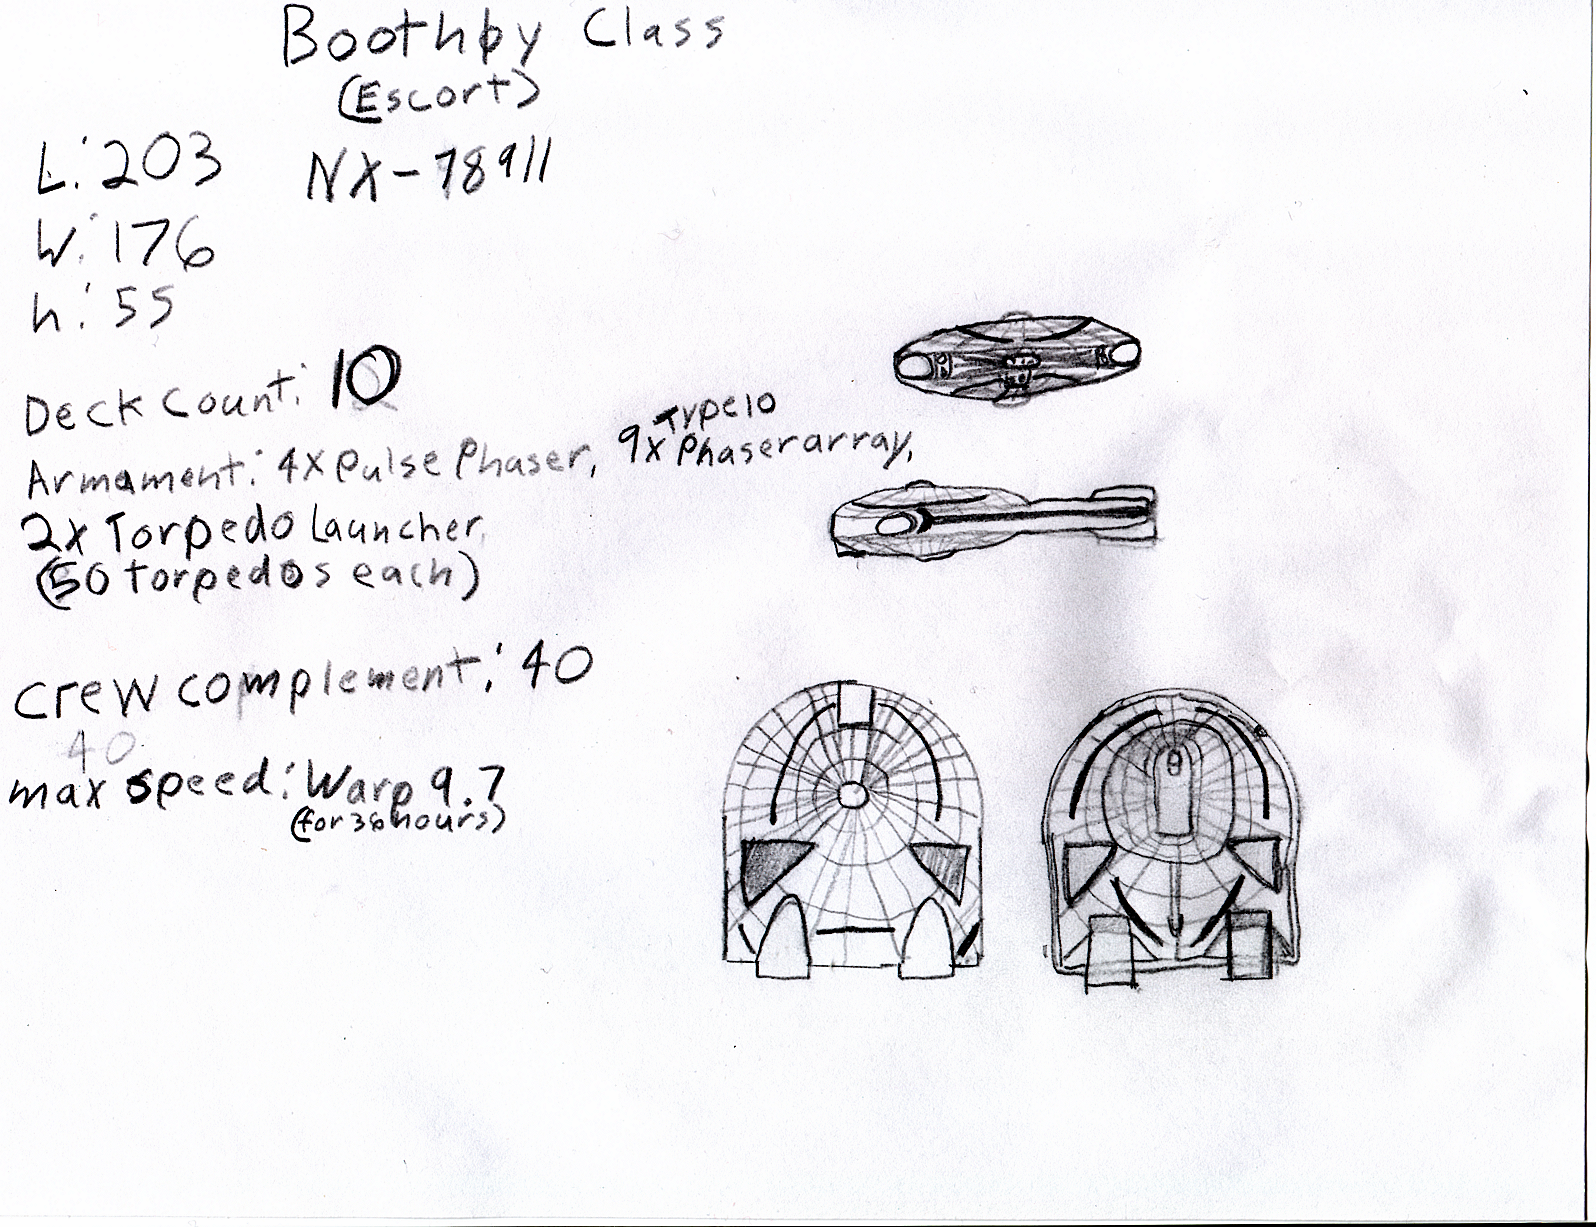 Boothby Class
(Escort)
NX-78911
L: 203
W: 176
h: 55
Deck Count: 10
Armament: 4x Pulse Phaser, 9x Type10 Phaser array,
2x Torpedo Launcher
(50 torpedos each)
Crew complement: 40
40
max speed: Warp 9.7
(for 36 hours)